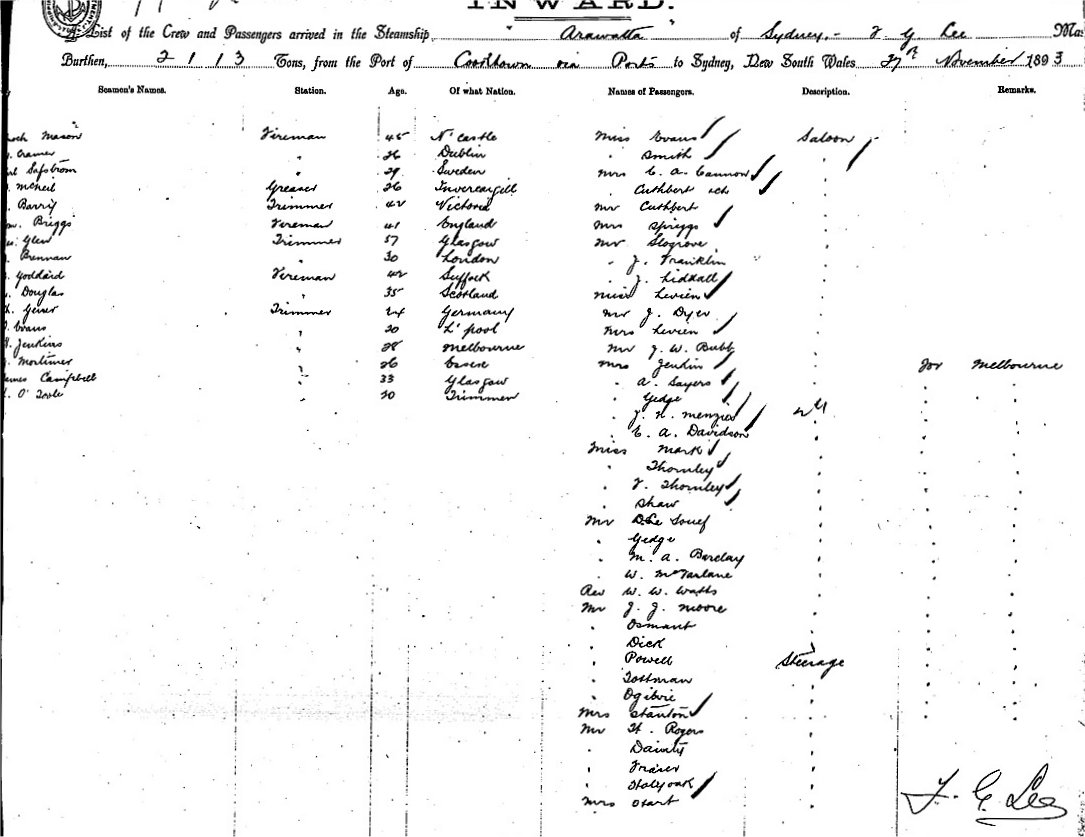 INWARD.
List of the Crew and Passengers arrived in the Steamship "Arawatta" of Sydney, - F G Lee Ma
Burthen, 2113 Tons, from the Port of Cooktown via Ports to Sydney, New South Wales 27th November 1893
Seamen's Names. Station. Age. Of what Nation. Names of Passengers. Description. Remarks.
och Mason Fireman 45 N'castle Miss Evans Saloon
Cramer " 26 Dublin " Smith "
Safstrom " 29 Sweden Mrs C. A. Cannon "
McNeil Greaser 26 Invercargill " Cuthbert "
Barry Trimmer 42 Victoria Mr Cuthbert "
Briggs Fireman 41 England Mrs Spriggs "
Glen Trimmer 57 Glasgow Mr Slogrove "
Brennan " 30 London " J. Franklin "
Goddard Fireman 42 Suffolk " J. Liddall "
Douglas " 35 Scotland Miss Levien "
Geiser Trimmer 24 Germany Mr J. Dyer "
Evans " 20 L'pool Mrs Levien "
Jenkins " 28 Melbourne Mr J. W. Bubb "
Mortimer " 26 Essex Mrs Jenkin " For Melbourne
ames Campbell " 33 Glasgow " A. Sayers " " "
O'Toole " 20 Trimmer " Gedge " " "
" J. H. Menzies " "
" E. A. Davidson " " "
Miss Mark " " "
" Thornley " " "
" F. Thornley " " "
" Shaw " " "
Mr Souef " " "
" Gedge " " "
" M. A. Barclay " " "
" W. McFarlane " " "
Rev W. W. Watts " " "
Mr J. J. Moore " " "
" Osmant " " "
" Dick " " "
" Powell Steerage " "
" Tottman " " "
" Ogilvie " " "
Mrs Stanton " " "
Mr H. Rogers "
" Dainty "
" Fraser "
" Holyoak "
Mrs Start "
F. G. Lee